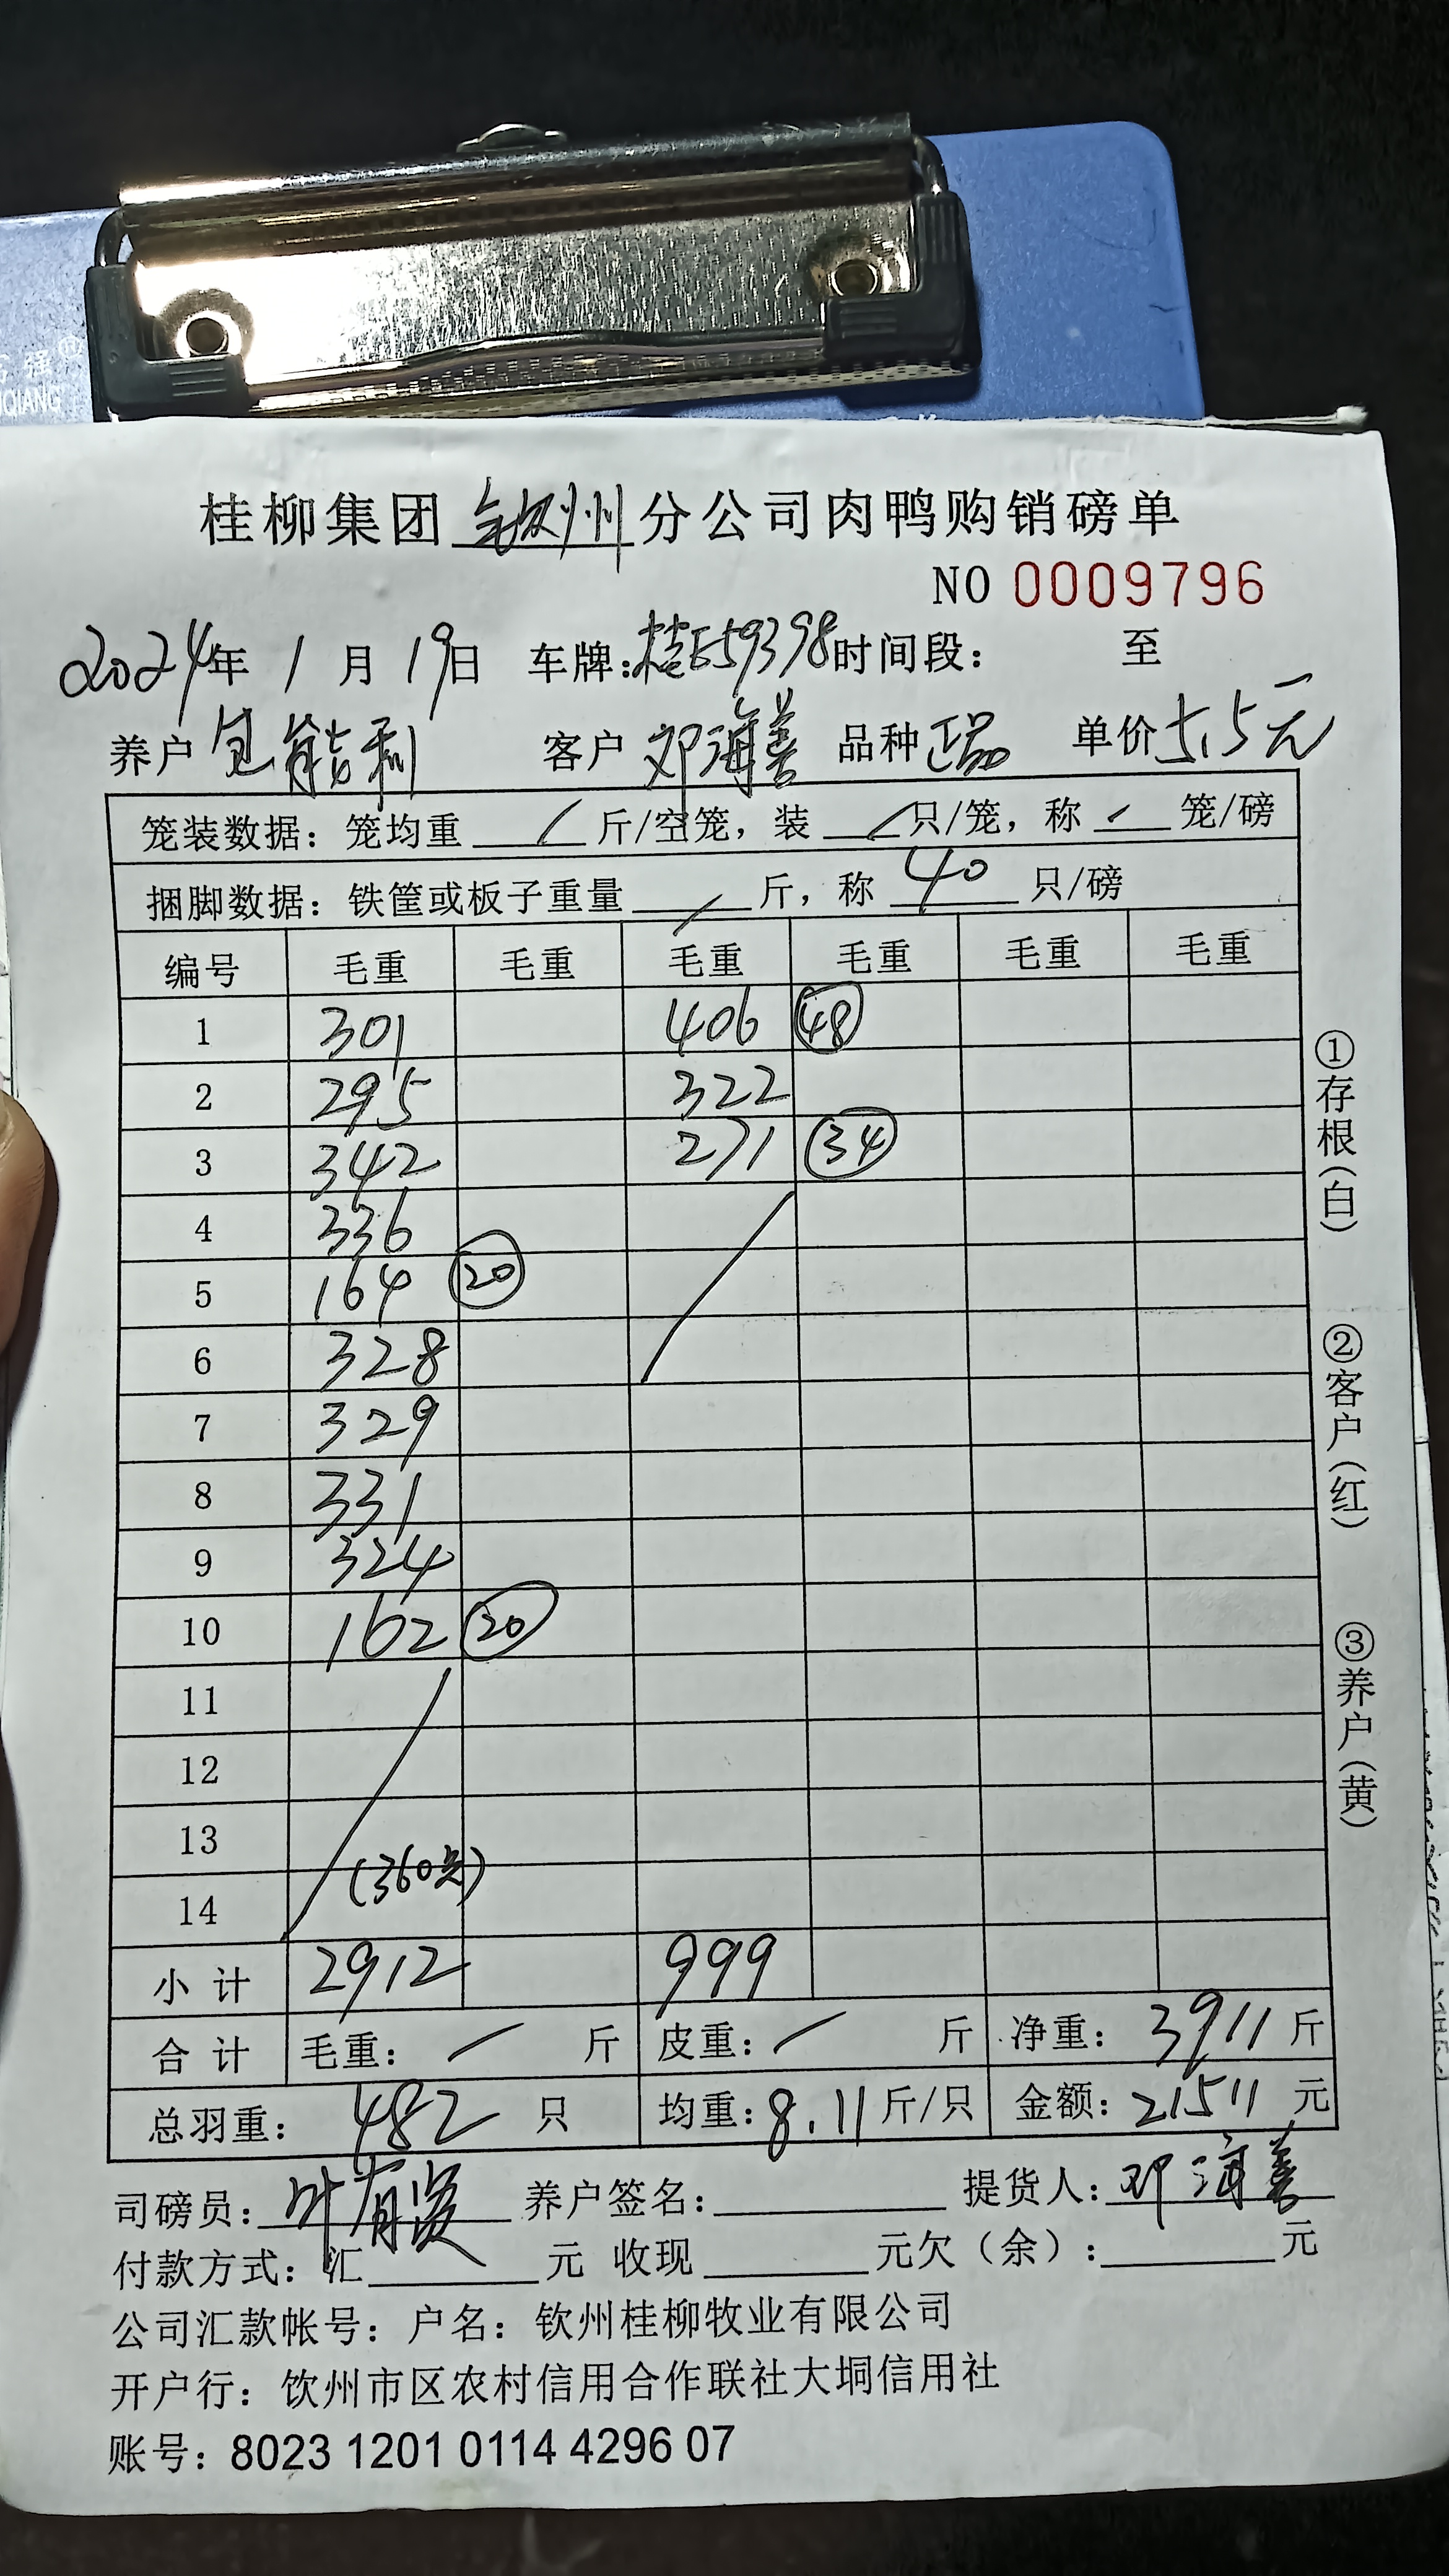 强®
QIANG
桂柳集团 钦州 分公司肉鸭购销磅单
NO 0009796
2024年 1 月 19日 车牌:桂E59398 时间段: 至
养户 包能利 客户 邓海善 品种 正品 单价 5.5元
笼装数据: 笼均重 / 斤/空笼, 装 / 只/笼, 称 / 笼/磅
捆脚数据: 铁筐或板子重量 / 斤, 称 40 只/磅
编号 毛重 毛重 毛重 毛重 毛重 毛重
1 301 406 48
2 295 322
3 342 271 34
4 336
5 164 20
6 328
7 329
8 331
9 324
10 162 20
11
12
13
14 (360只)
小计 2912 999
合计 毛重: / 斤 皮重: / 斤 净重: 3911 斤
总羽重: 482 只 均重: 8.11 斤/只 金额: 21511 元
司磅员: 叶有 养户签名: 提货人: 邓海善
付款方式: 汇 元 收现 元欠(余): 元
公司汇款帐号: 户名: 钦州桂柳牧业有限公司
开户行: 饮州市区农村信用合作联社大垌信用社
账号: 8023 1201 0114 4296 07
①存根(白)
②客户(红)
③养户(黄)